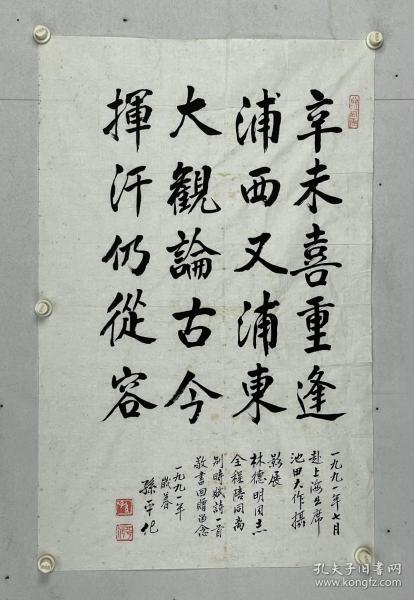 辛未喜重逢
浦西又浦東
大觀論古今
揮汗仍從容
一九九一年七月
赴上海出席
池田大作攝
影展
林德明同志
全程陪同商
別時賦詩一首
敬書回贈留念
一九九一年
歲暮
孫平化
孔夫子旧书网
www.kongfz.com